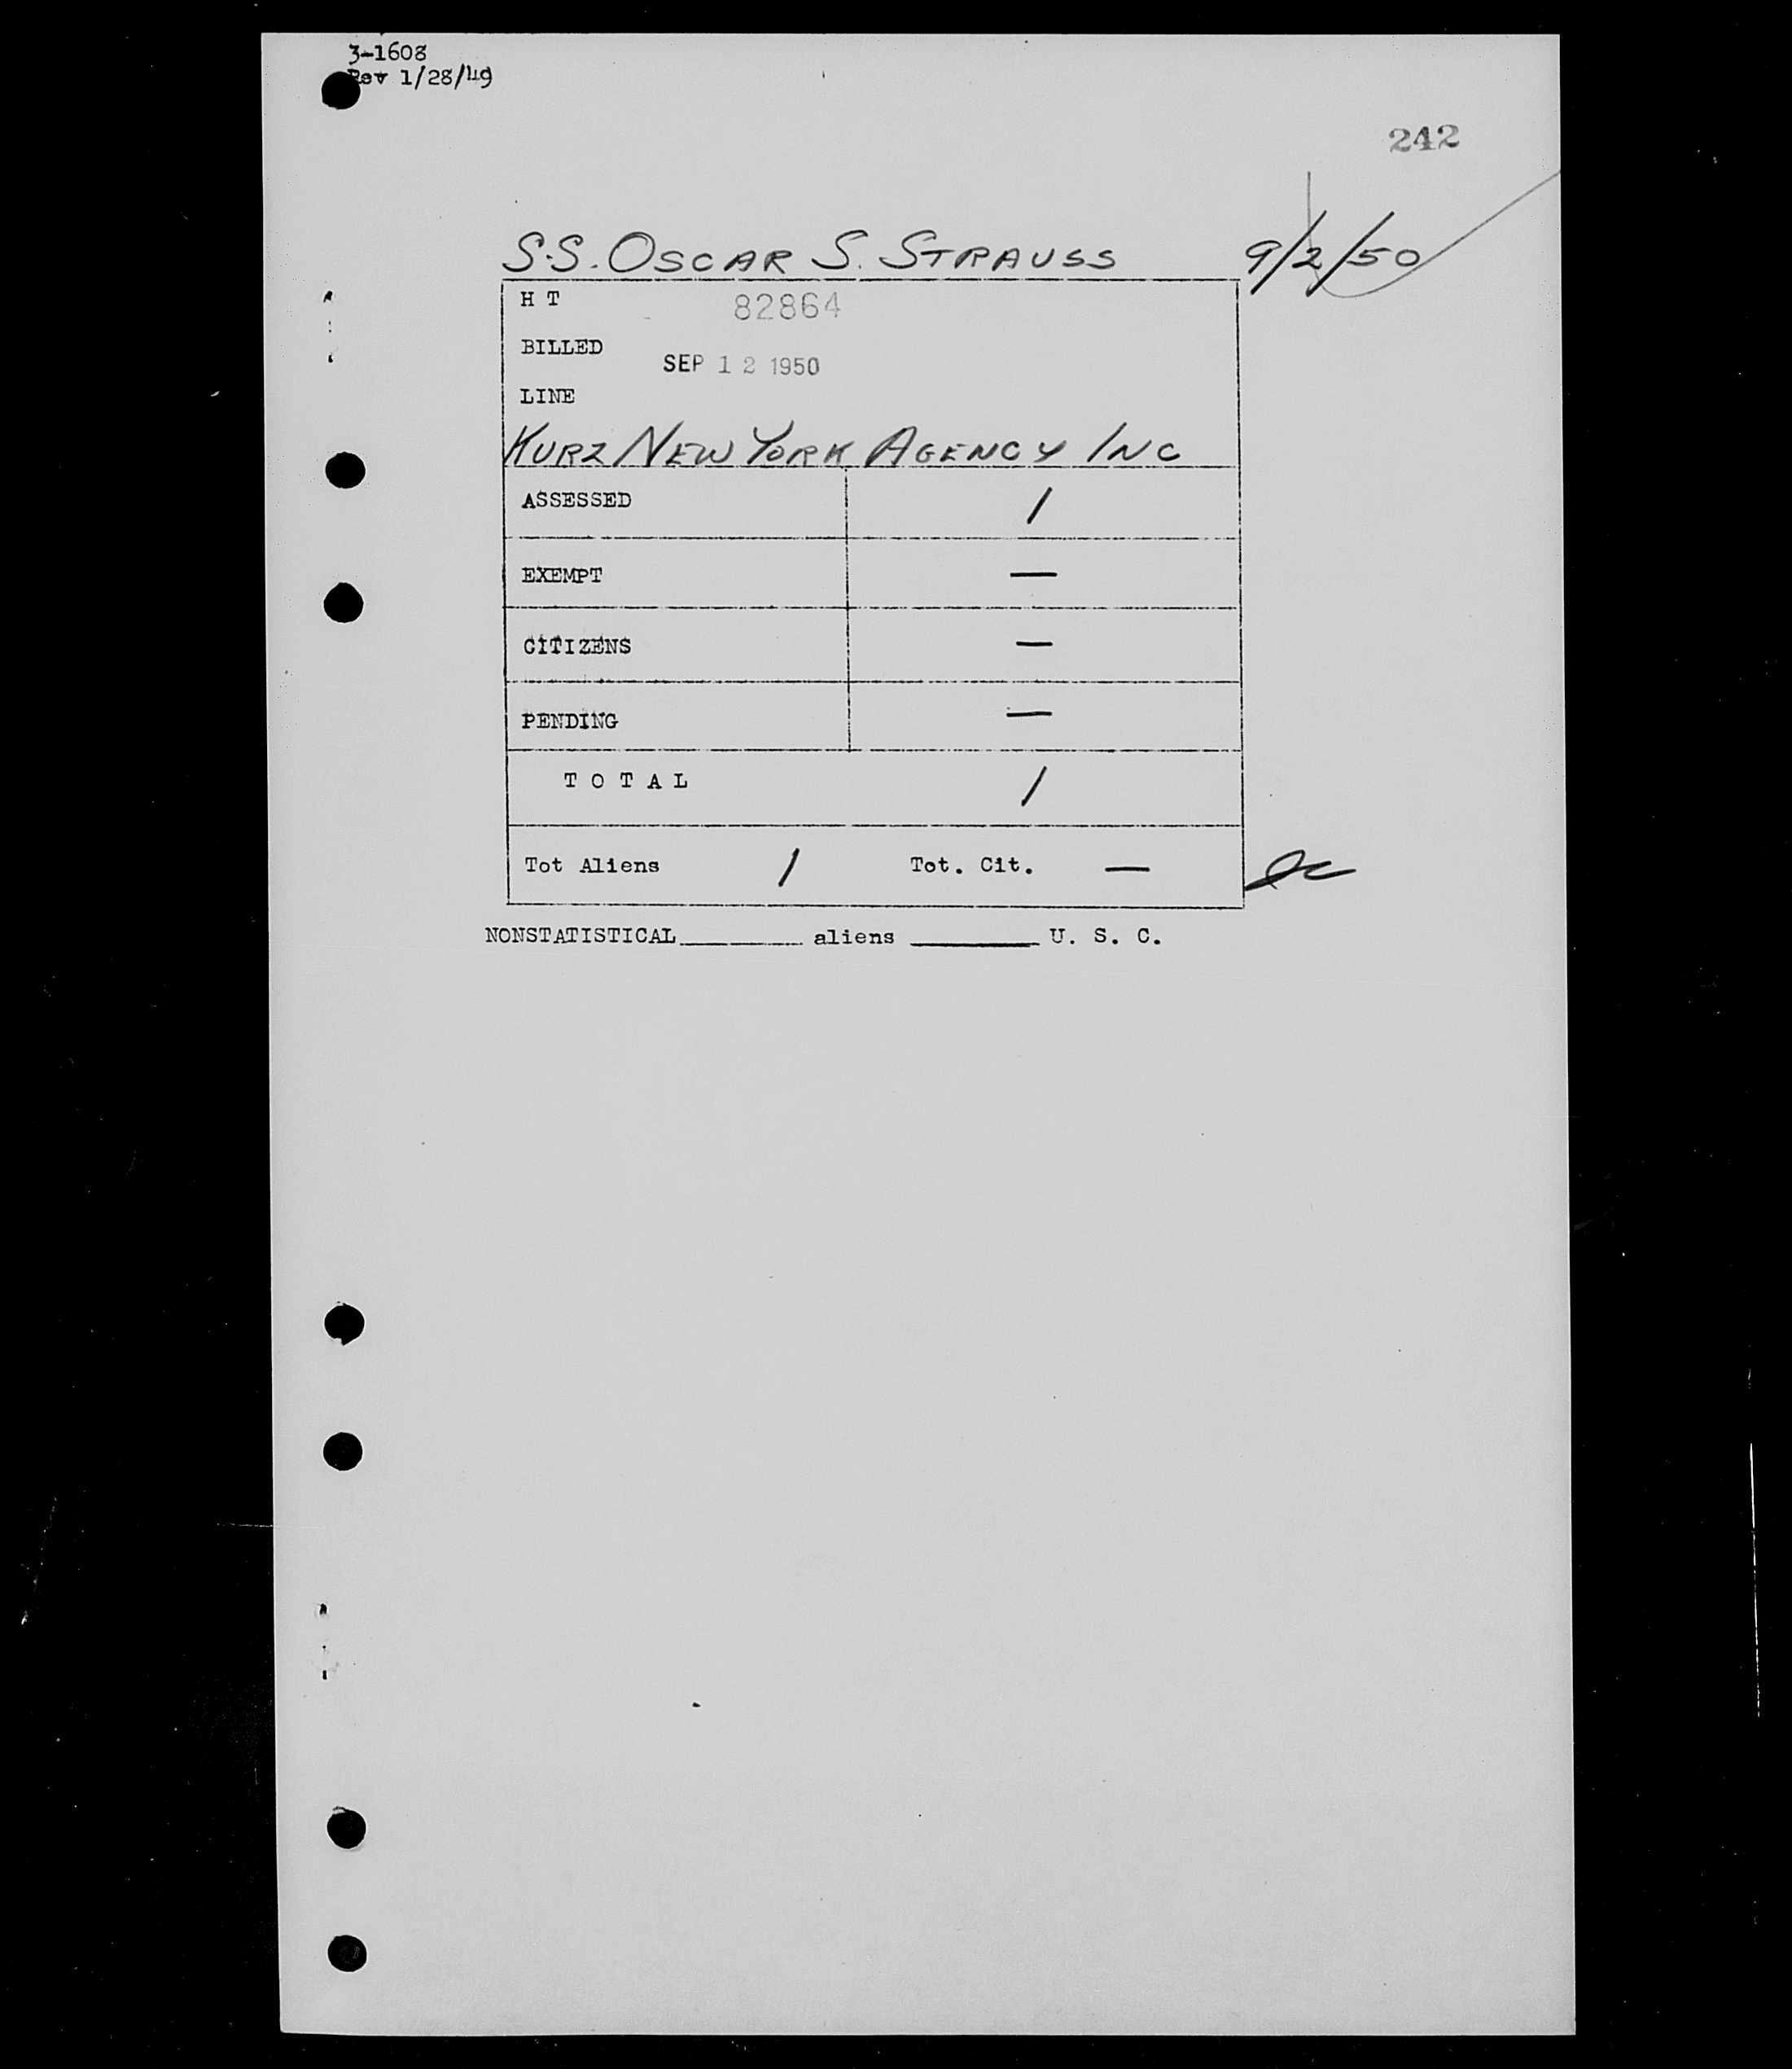 3-1608
Rev 1/28/49
242
S.S. OSCAR S. STRAUSS 9/2/50
H T 82864
BILLED SEP 12 1950
LINE
KURZ NEW YORK AGENCY INC
ASSESSED 1
EXEMPT —
CITIZENS —
PENDING —
T O T A L 1
Tot Aliens 1 Tot. Cit. —
NONSTATISTICAL________ aliens ________ U. S. C.